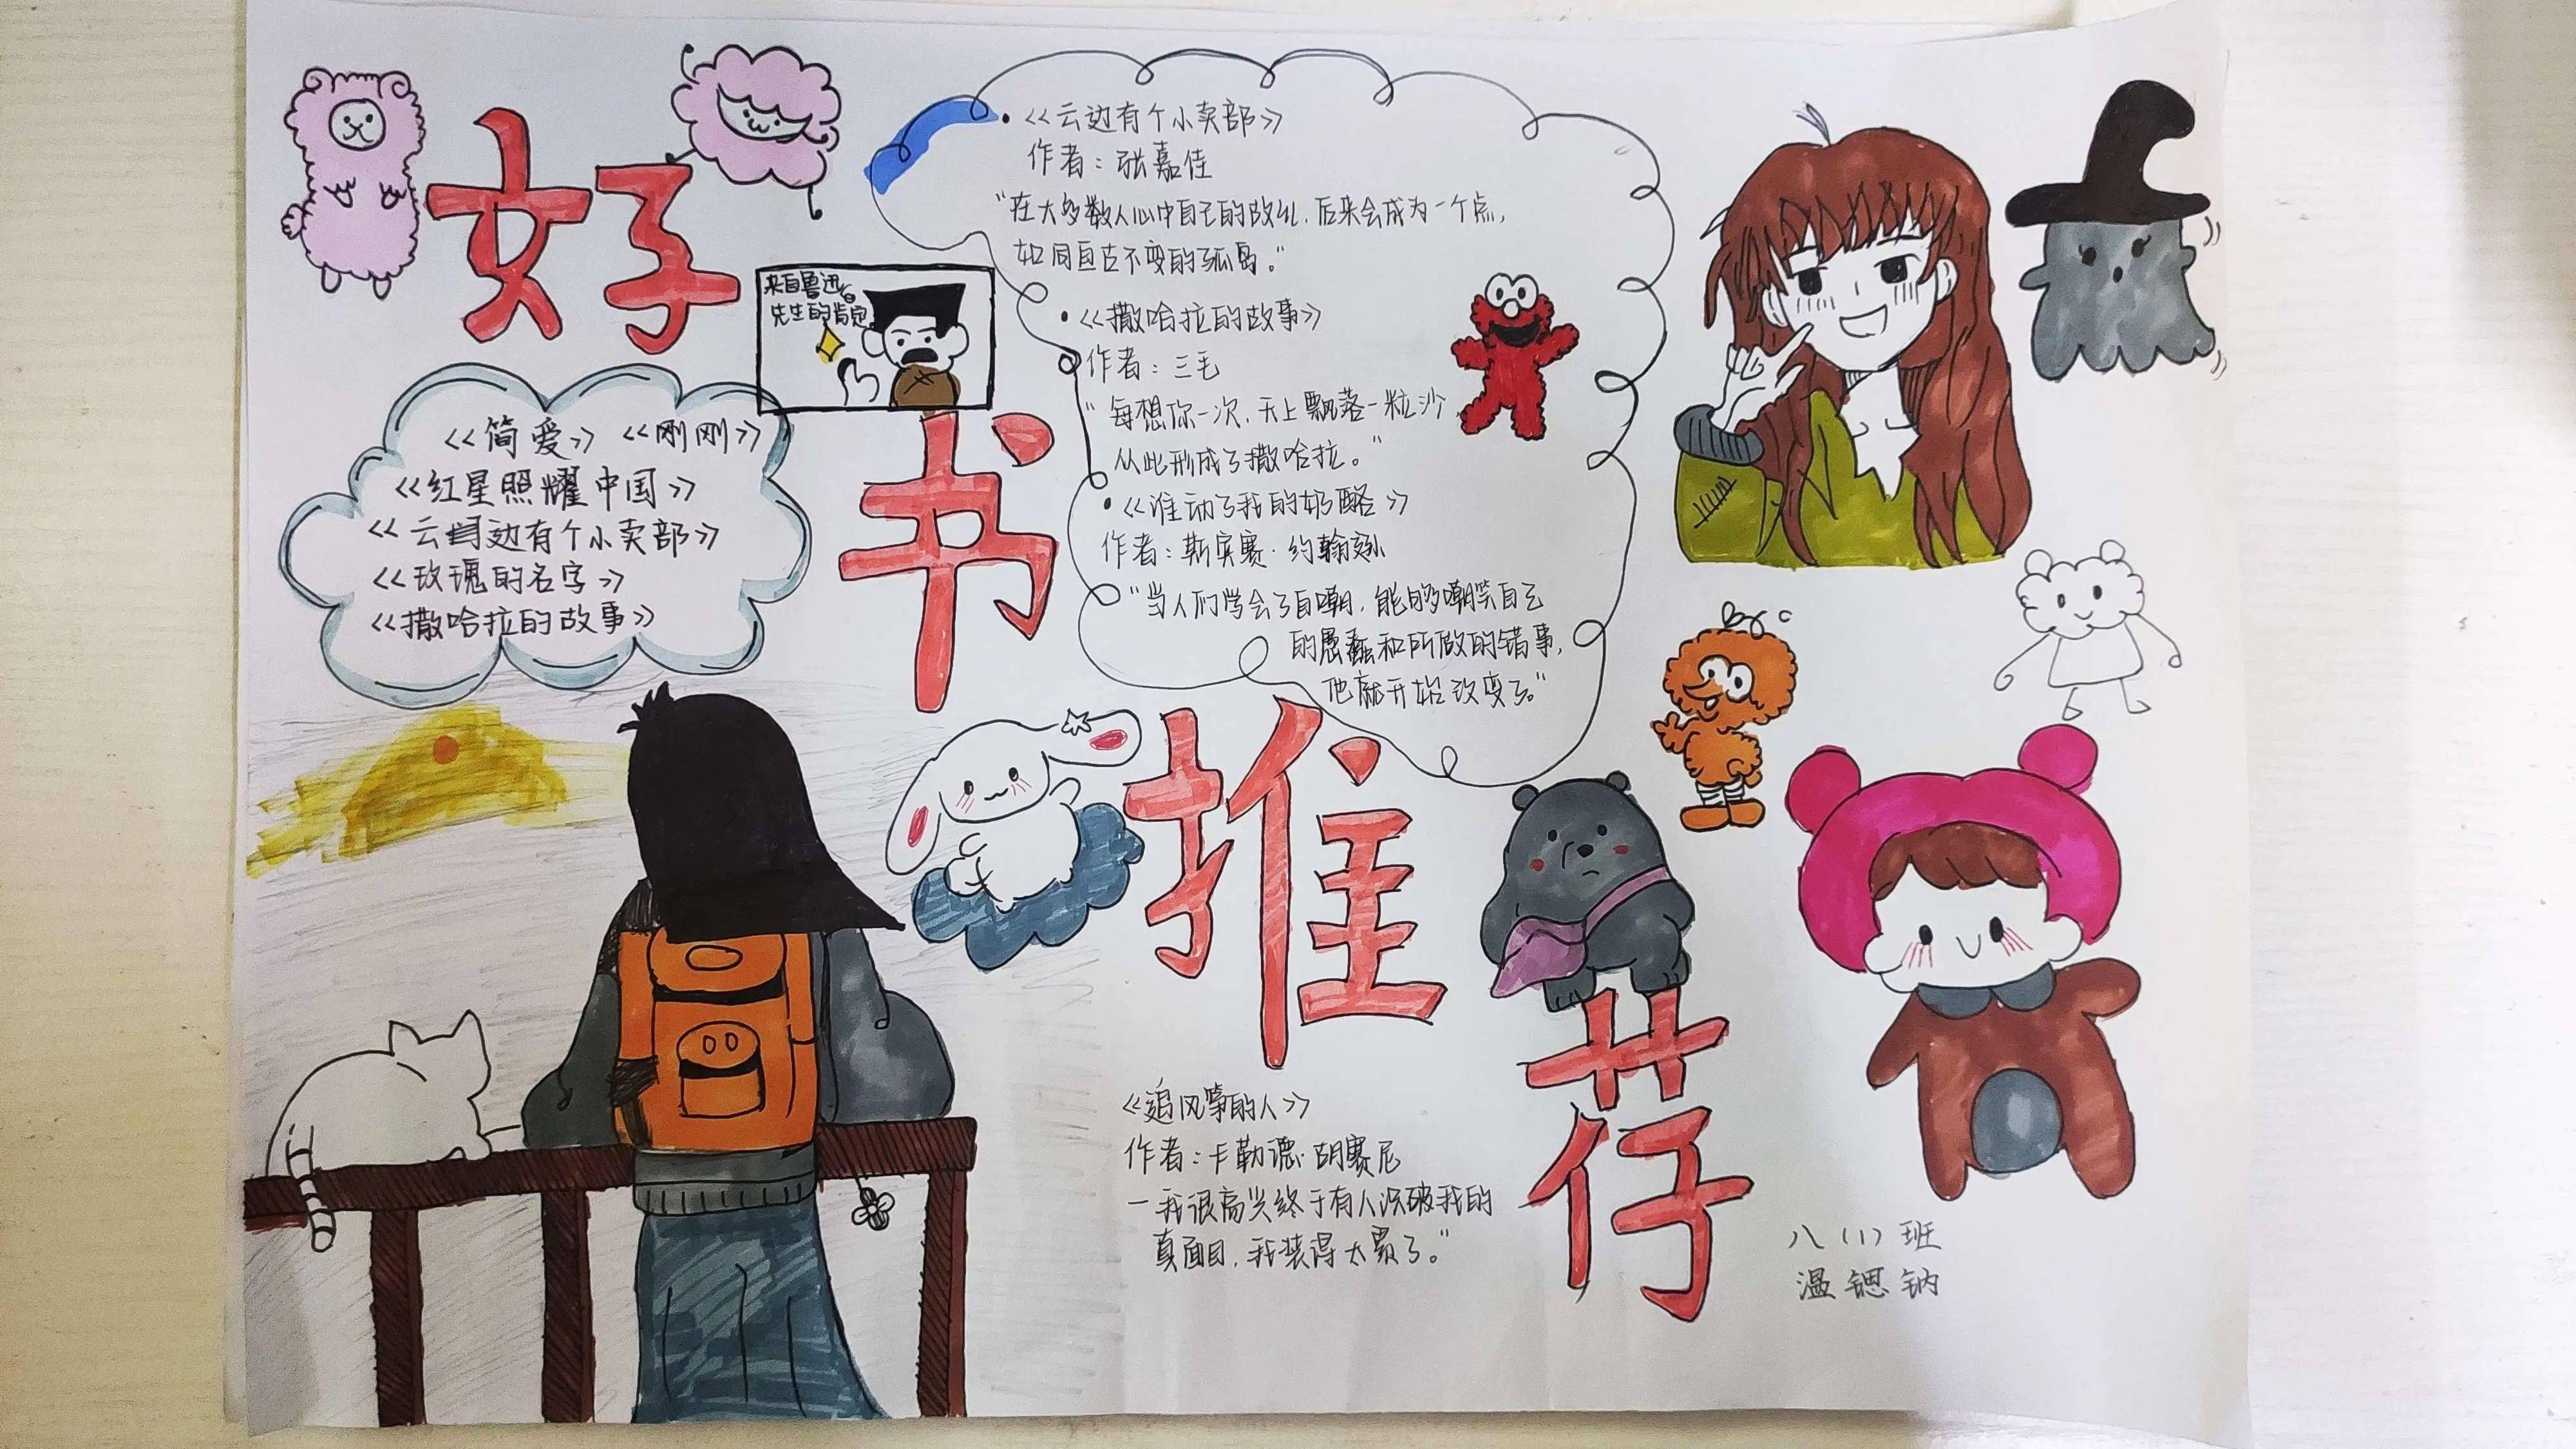 好书推荐
来自鲁迅
先生的肯定
《简爱》《刚刚》
《红星照耀中国》
《云边有个小卖部》
《玫瑰的名字》
《撒哈拉的故事》
•《云边有个小卖部》
作者：张嘉佳
“在大多数人心中自己的故乡，后来会成为一个点，
如同亘古不变的孤岛。”
•《撒哈拉的故事》
作者：三毛
“每想你一次，天上飘落一粒沙，
从此形成了撒哈拉。”
•《谁动了我的奶酪》
作者：斯宾赛·约翰逊
“当人们学会了自嘲，能够嘲笑自己
的愚蠢和所做的错事，
他就开始改变了。”
《追风筝的人》
作者：卡勒德·胡赛尼
一我很高兴终于有人识破我的
真面目，我装得太累了。”
八（1）班
温锶钠